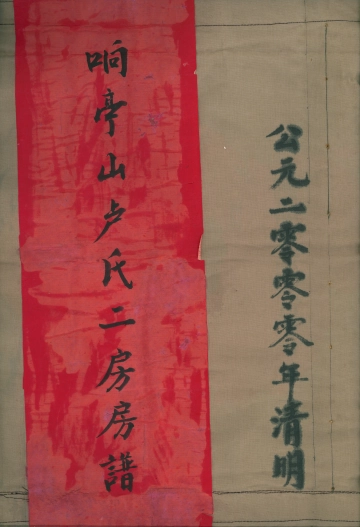 公元二零零零年清明
响亭山卢氏二房房譜